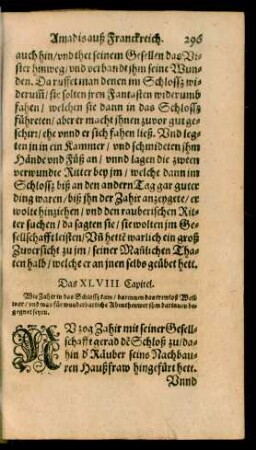 Amadis auß Franckreich. 296
auch hin / vnd thet seinem Gesellen das Vi-
sier hinweg / vnd verbandt jhm seine Wun-
den. Da ruffet man denen im Schlossz wi-
derumb / sie solten jren Fantasten widerumb
fahen / welchen sie dann in das Schlossz
führeten / aber er macht jhnen zuvor gut ge-
schirr / ehe vnnd er sich fahen ließ. Vnd leg-
ten in in ein Kammer / vnd schmidetten jhm
Hände vnd Füß an / vnnd lagen die zween
verwundte Ritter bey jm / welche dann im
Schlossz biß an den andern Tag gar guter
ding waren / biß jhn der Zahir anzeygete / er
wolte hinziehen / vnd den rauberischen Rit-
ter suchen / da sagten sie / sie wolten jm Ge-
sellschafft leisten / Vñ hette warlich ein groß
Zuversicht zu jm / seiner Mañlichen Tha-
ten halb / welche er an jnen selbs geübet hett.
Das XLVIII Capitel.
Wie Zahir in das Schlossz kam / darinnen das trewloß Weib
war / vnd was für wunderbarliche Abentheuwer jhm darinnen be-
gegnet seyen.
NV zog Zahir mit seiner Gesell-
schafft gerad dẽ Schloß zu / da-
hin d' Räuber seins Nachbau-
ren Haußfraw hingefürt hett.
Vnnd